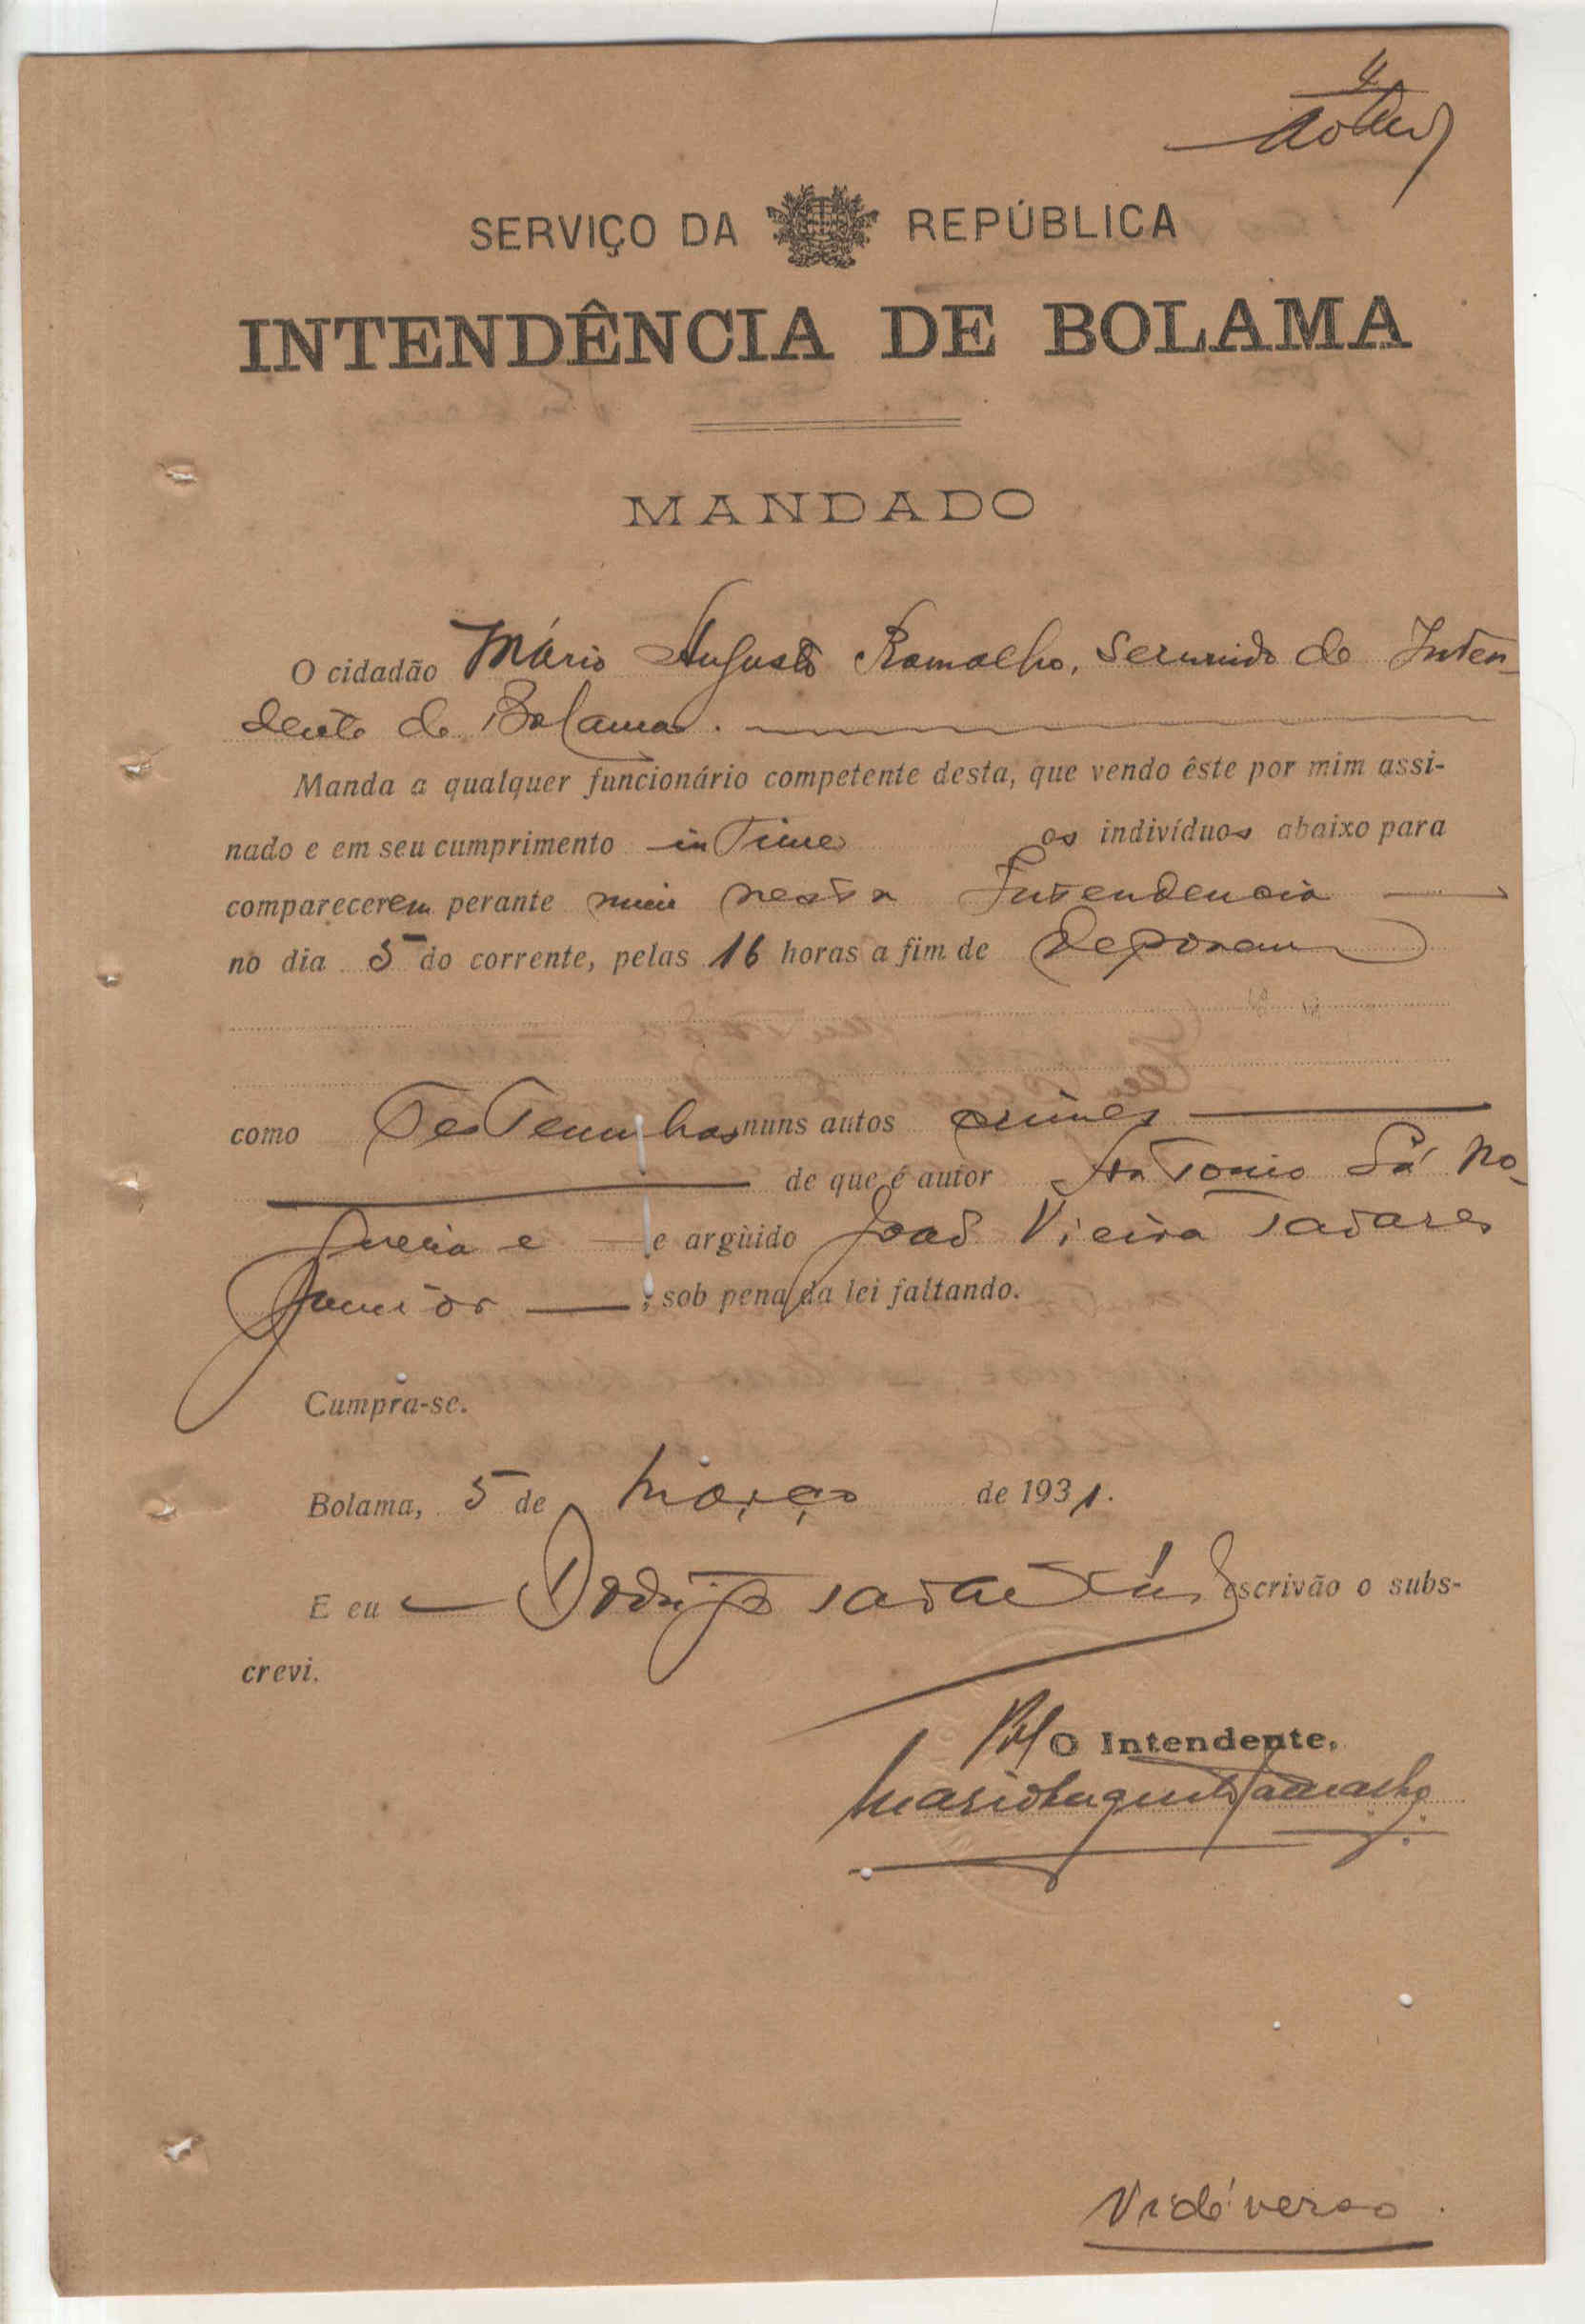 4
SERVIÇO DA REPÚBLICA
INTENDÊNCIA DE BOLAMA
MANDADO
O cidadão Mário Augusto Ramalho, servindo de Inten-
dente de Bolama.
Manda a qualquer funcionário competente desta, que vendo êste por mim assi-
nado e em seu cumprimento intime os indivíduos abaixo para
comparecerem perante mim nesta Intendencia
no dia 5 do corrente, pelas 16 horas a fim de deporem
como Testemunhas nuns autos crimes
de que é autor Antonio Sá No-
gueira e e argùido João Vieira Tavares
Junior ; sob pena da lei faltando.
Cumpra-se.
Bolama, 5 de Março de 1931.
E eu Rodrigo escrivão o subs-
crevi.
O Intendente,
Mario Augusto Ramalho
Vidé verso.